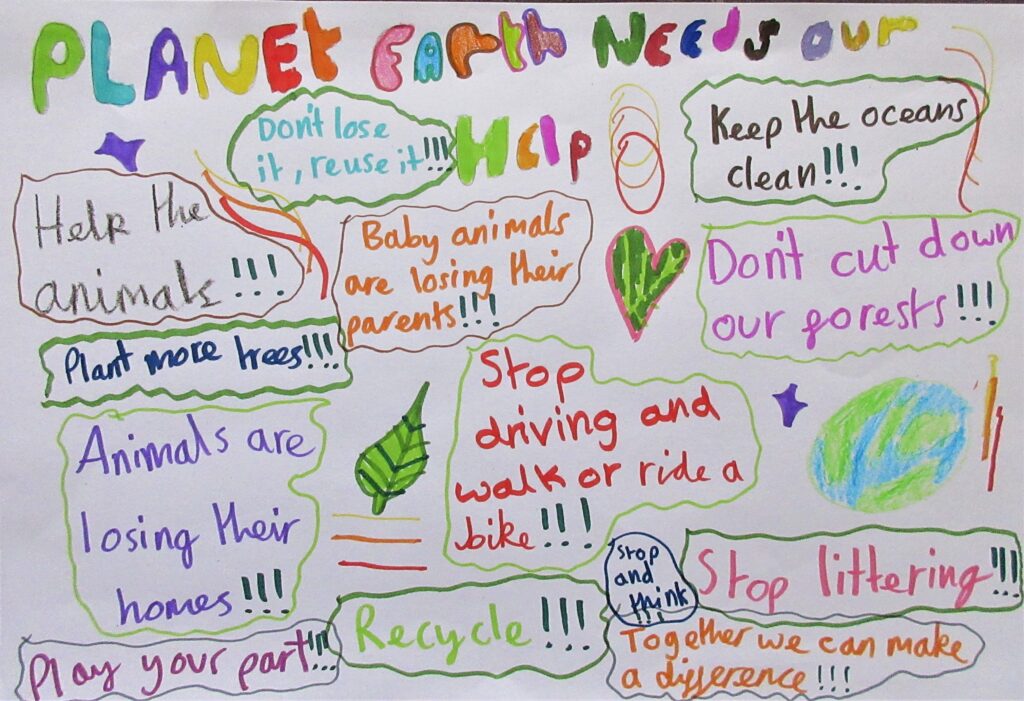 PLANET Earth Needs our
Help
Don't lose
it, reuse it!!!
Keep the oceans
clean!!!
Help the
animals!!!
Baby animals
are losing their
parents!!!
Don't cut down
our forests!!!
Plant more trees!!!
Stop
driving and
walk or ride a
bike!!!
Animals are
losing their
homes!!!
Stop
and
think
!!!
Stop littering!!!
Recycle!!!
Play your part!!!
Together we can make
a difference!!!